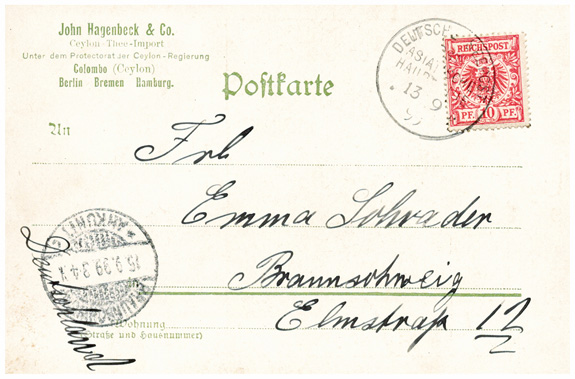 John Hagenbeck & Co.
Ceylon-Thee-Import
Unter dem Protectorat der Ceylon-Regierung
Colombo (Ceylon)
Berlin Bremen Hamburg.
Postkarte
REICHSPOST
PF. 10 PF.
13 9
99
An
Frl
Emma Schrader
Braunschweig
Elmstraße 12
ANKUNFT
15.9.99.3-4.N
Deutschland
Wohnung
(Straße und Hausnummer)